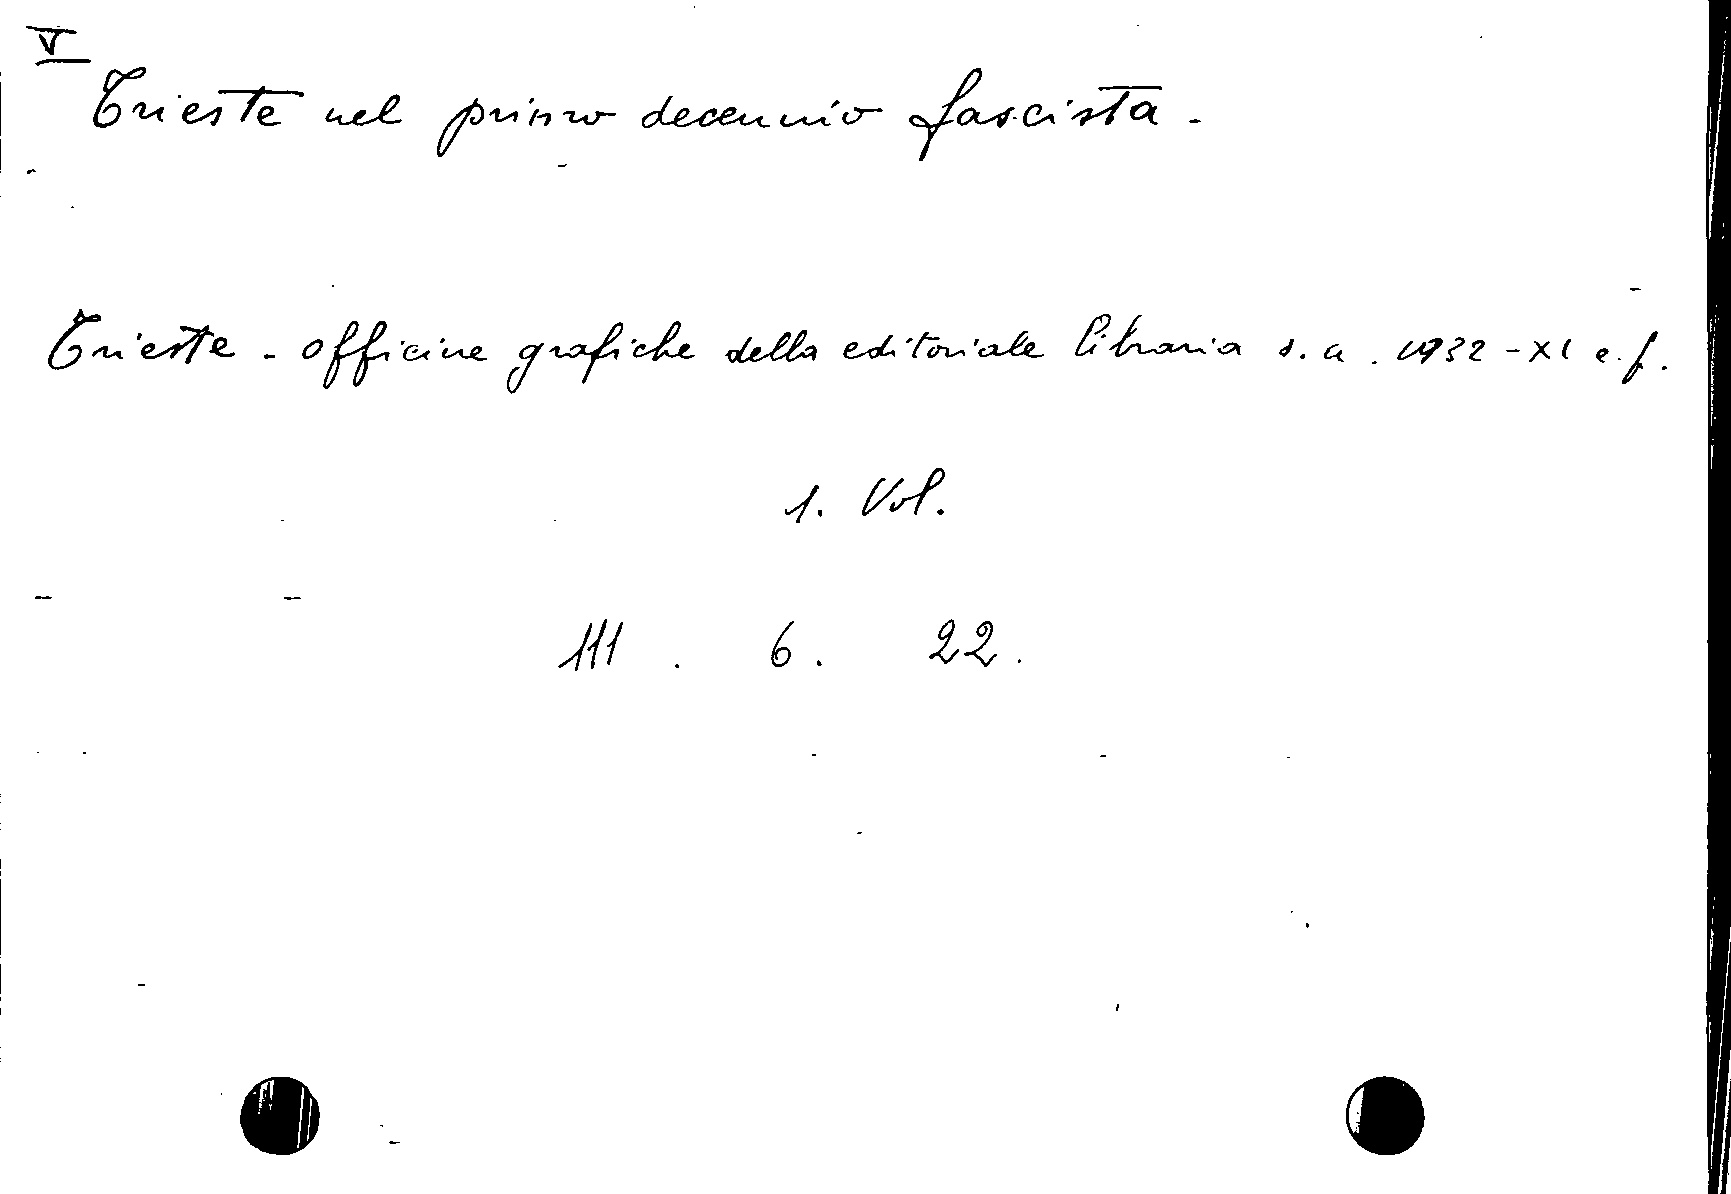 V
Trieste nel primo decennio fascista.
Trieste - officine grafiche della editoriale libraria s. a. 1932 - XI e. f.
1. Vol.
III . 6 . 22 .